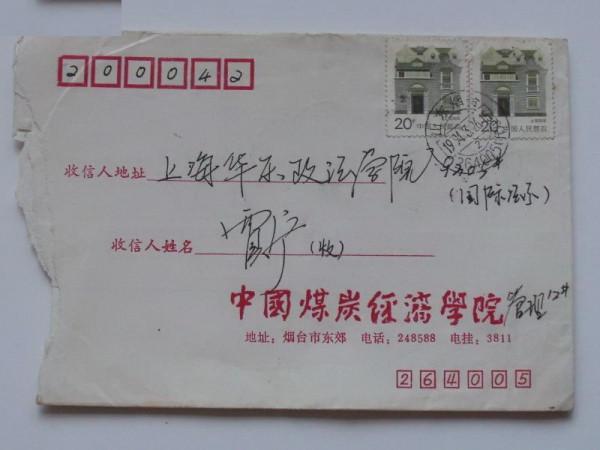 200042
20分 中国人民邮政
20分 中国人民邮政
收信人地址 上海华东政法学院
(国际法系)
收信人姓名 (收)
中國煤炭经濟學院 管理12#
地址：烟台市东郊 电话：248588 电挂：3811
264005